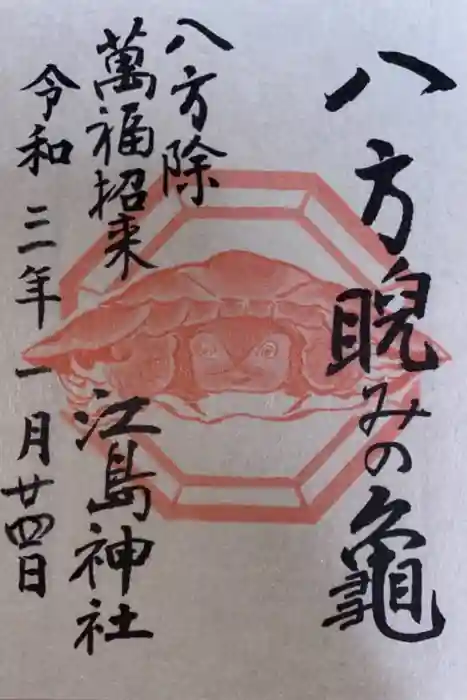 八方睨みの亀
八方除
萬福招来
江島神社
令和三年一月廿四日